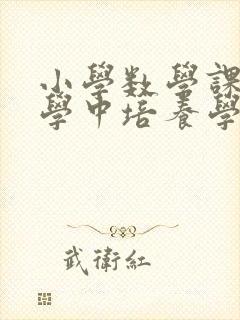 小學数學課
學中培養學
武衛紅